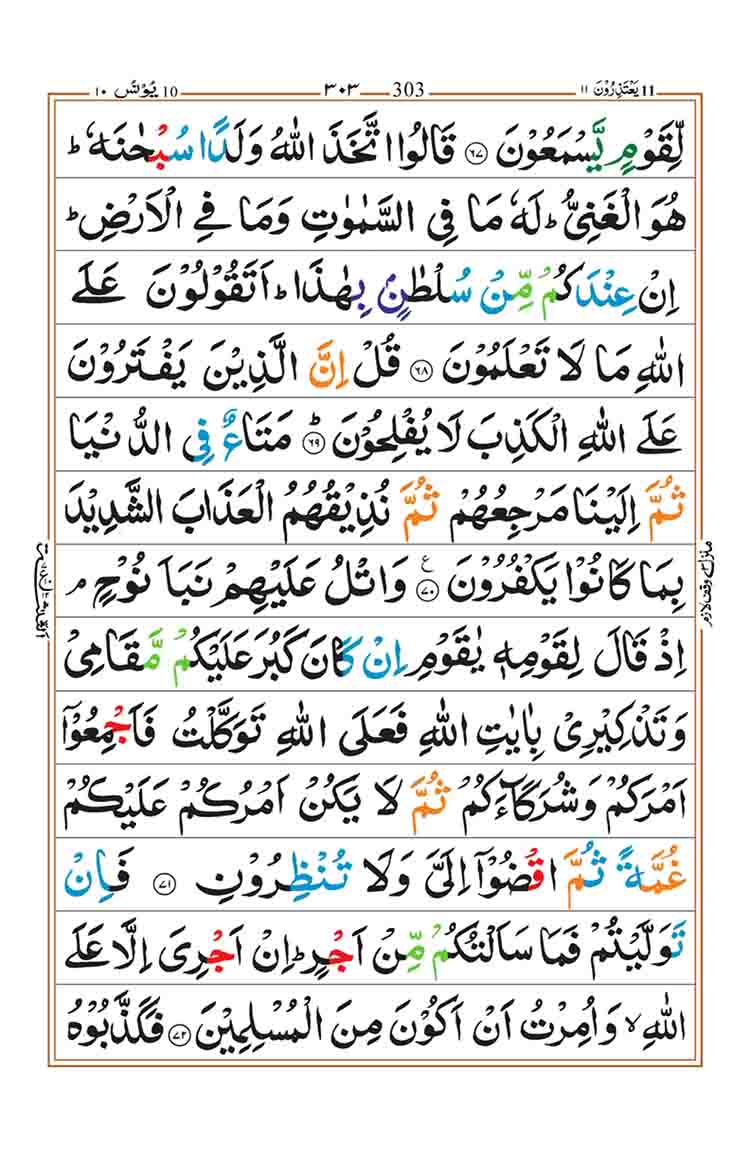 یَعْتَذِرُوْنَ ۱۱ 11 303 ۳۰۳ 10 یُوْنُس ۱۰
لِّقَوْمٍ یَّسْمَعُوْنَ ۝۶۷ قَالُوا اتَّخَذَ اللّٰهُ وَلَدًا سُبْحٰنَهٗ ؕ
هُوَ الْغَنِیُّ ؕ لَهٗ مَا فِی السَّمٰوٰتِ وَمَا فِی الْاَرْضِ ؕ
اِنْ عِنْدَكُمْ مِّنْ سُلْطٰنٍۭ بِهٰذَا ؕ اَتَقُوْلُوْنَ عَلَی
اللّٰهِ مَا لَا تَعْلَمُوْنَ ۝۶۸ قُلْ اِنَّ الَّذِیْنَ یَفْتَرُوْنَ
عَلَی اللّٰهِ الْكَذِبَ لَا یُفْلِحُوْنَ ۝۶۹ؕ مَتَاعٌ فِی الدُّنْیَا
ثُمَّ اِلَیْنَا مَرْجِعُهُمْ ثُمَّ نُذِیْقُهُمُ الْعَذَابَ الشَّدِیْدَ
بِمَا كَانُوْا یَكْفُرُوْنَ ۝۷۰ ع وَاتْلُ عَلَیْهِمْ نَبَاَ نُوْحٍ ۘ
اِذْ قَالَ لِقَوْمِهٖ یٰقَوْمِ اِنْ كَانَ كَبُرَ عَلَیْكُمْ مَّقَامِیْ
وَتَذْكِیْرِیْ بِاٰیٰتِ اللّٰهِ فَعَلَی اللّٰهِ تَوَكَّلْتُ فَاَجْمِعُوْۤا
اَمْرَكُمْ وَشُرَكَآءَكُمْ ثُمَّ لَا یَكُنْ اَمْرُكُمْ عَلَیْكُمْ
غُمَّةً ثُمَّ اقْضُوْۤا اِلَیَّ وَلَا تُنْظِرُوْنِ ۝۷۱ فَاِنْ
تَوَلَّیْتُمْ فَمَا سَاَلْتُكُمْ مِّنْ اَجْرٍ ؕ اِنْ اَجْرِیَ اِلَّا عَلَی
اللّٰهِ ۙ وَاُمِرْتُ اَنْ اَكُوْنَ مِنَ الْمُسْلِمِیْنَ ۝۷۲ فَكَذَّبُوْهُ
وقف لازم